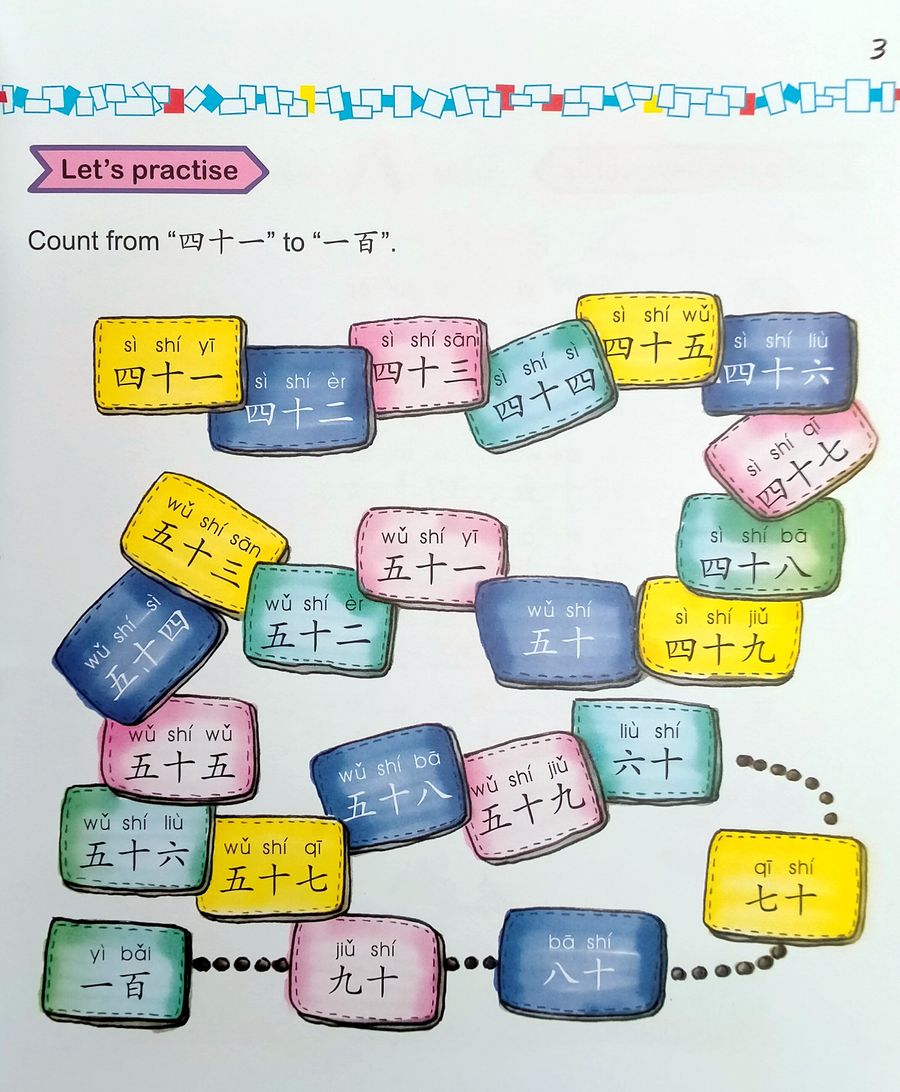 3
Let's practise
Count from “四十一” to “一百”.
sì shí yī
四十一
sì shí èr
四十二
sì shí sān
四十三
sì shí sì
四十四
sì shí wǔ
四十五
sì shí liù
四十六
sì shí qī
四十七
sì shí bā
四十八
sì shí jiǔ
四十九
wǔ shí
五十
wǔ shí yī
五十一
wǔ shí èr
五十二
wǔ shí sān
五十三
wǔ shí sì
五十四
wǔ shí wǔ
五十五
wǔ shí liù
五十六
wǔ shí qī
五十七
wǔ shí bā
五十八
wǔ shí jiǔ
五十九
liù shí
六十
qī shí
七十
bā shí
八十
jiǔ shí
九十
yì bǎi
一百